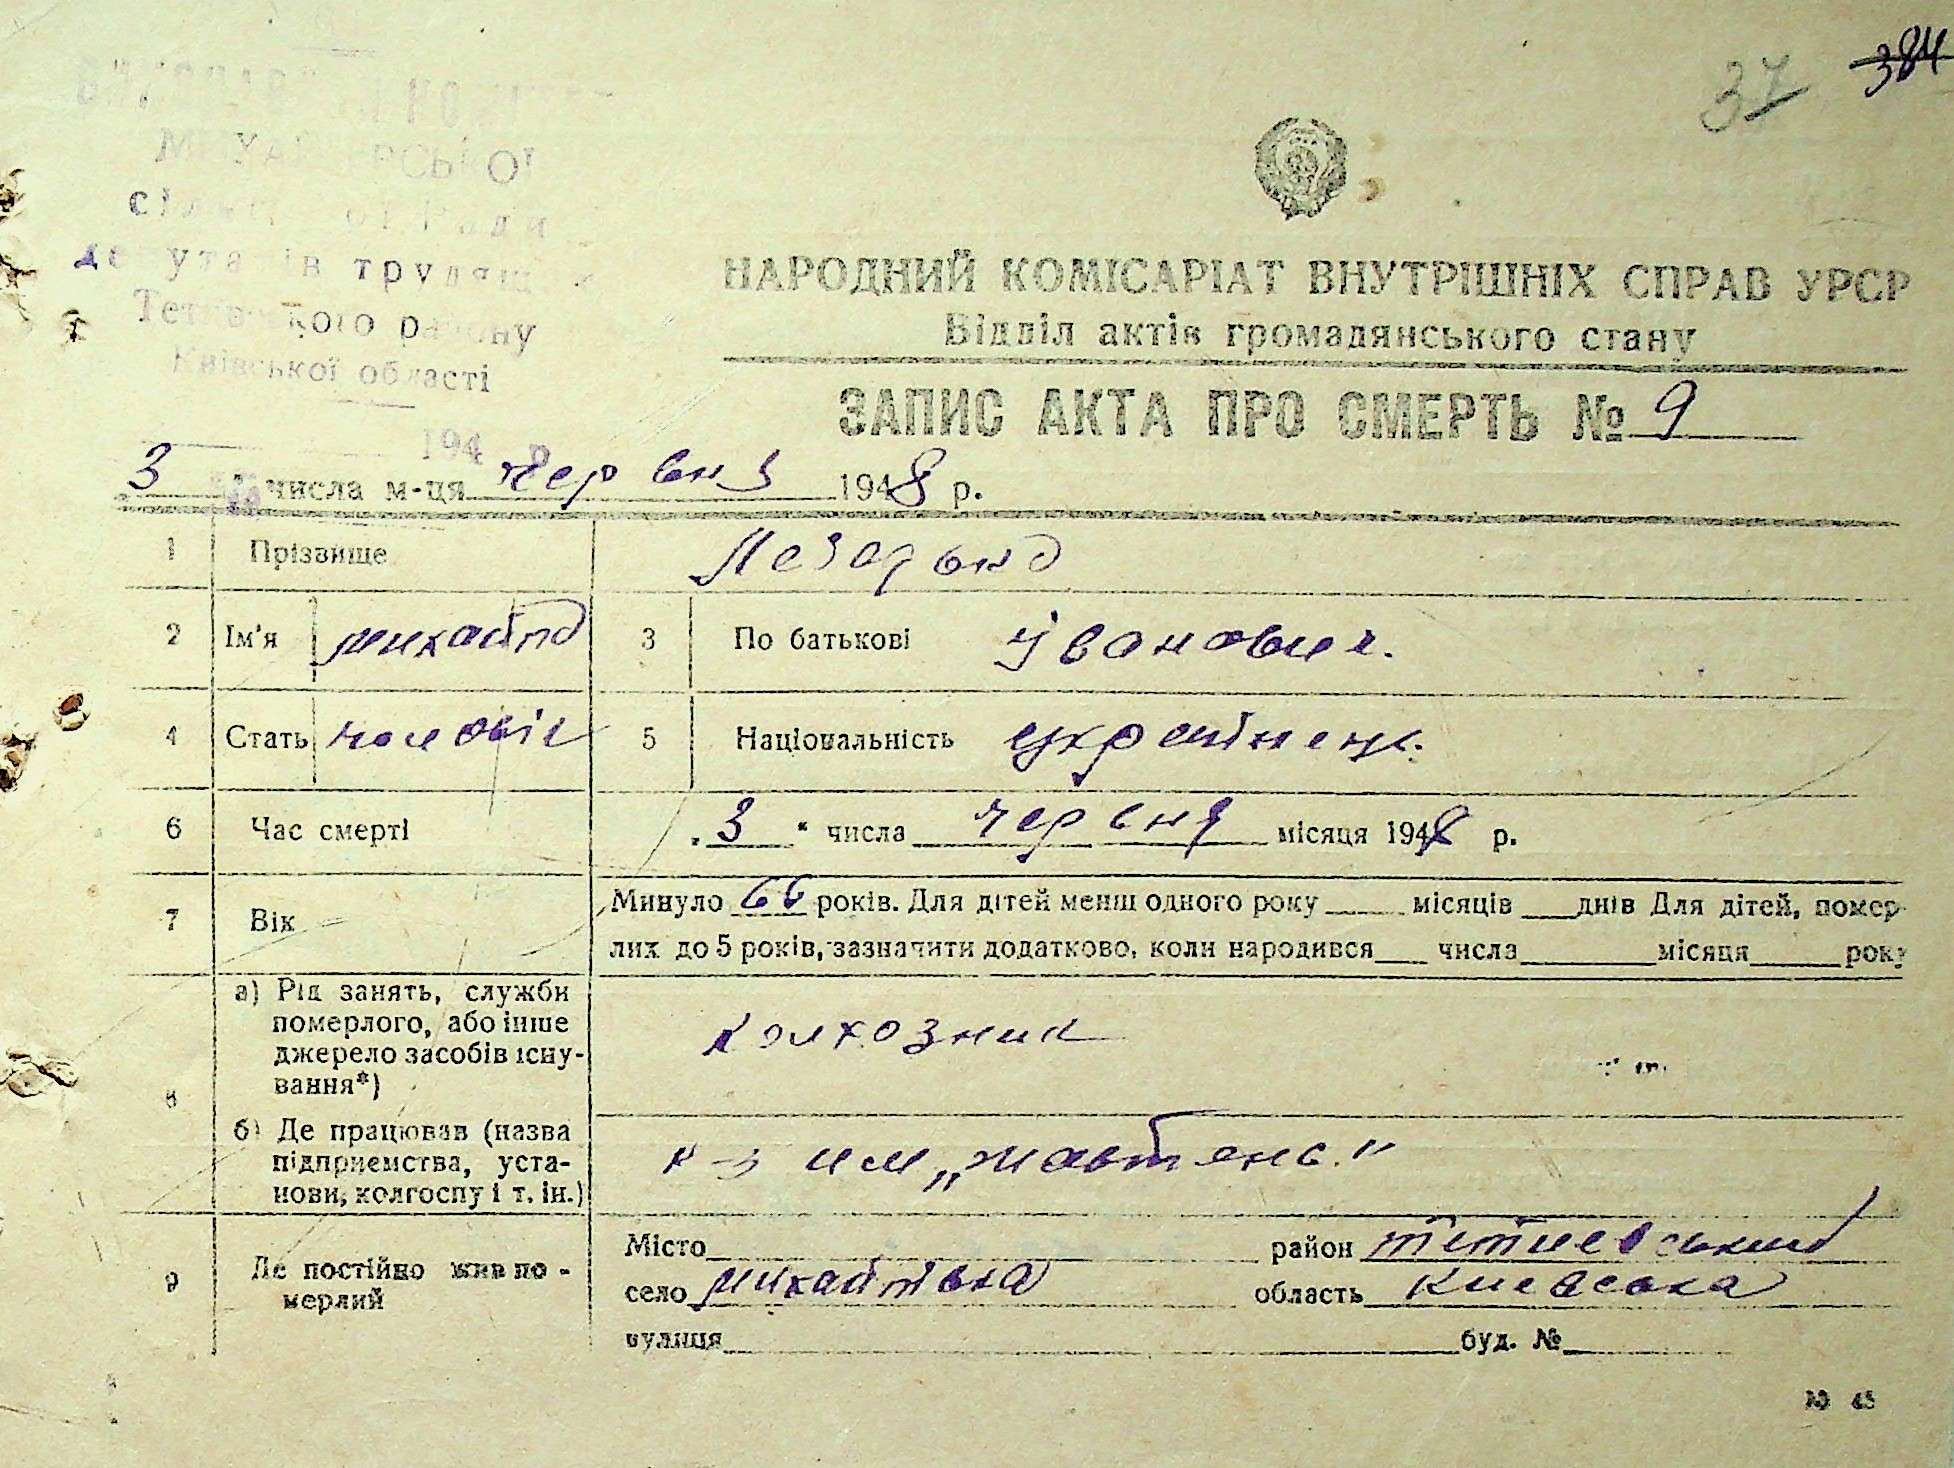 37 384
депутатів трудящ
Тетіївського району
Київської області
194
НАРОДНИЙ КОМІСАРІАТ ВНУТРІШНІХ СПРАВ УРСР
Відділ актів громадянського стану
ЗАПИС АКТА ПРО СМЕРТЬ № 9
3 " числа м-ця червня 1948 р.
1 Прізвище
2 Ім'я михайло 3 По батькові Іванович.
4 Стать чоловік 5 Національність українець.
6 Час смерті „3" числа червня місяця 1948 р.
7 Вік Минуло 66 років. Для дітей менш одного року місяців днів Для дітей, помер-
лих до 5 років, зазначити додатково, коли народився числа місяця року
8 а) Рід занять, служби
померлого, або інше
джерело засобів існу-
вання*)
колхозник
б) Де працював (назва
підприємства, уста-
нови, колгоспу і т. ін.)
к-з им „жавтень."
9 Де постійно жив по-
мерлий
Місто район тетиевський
село михайлівка область киевська
вулиця буд. №